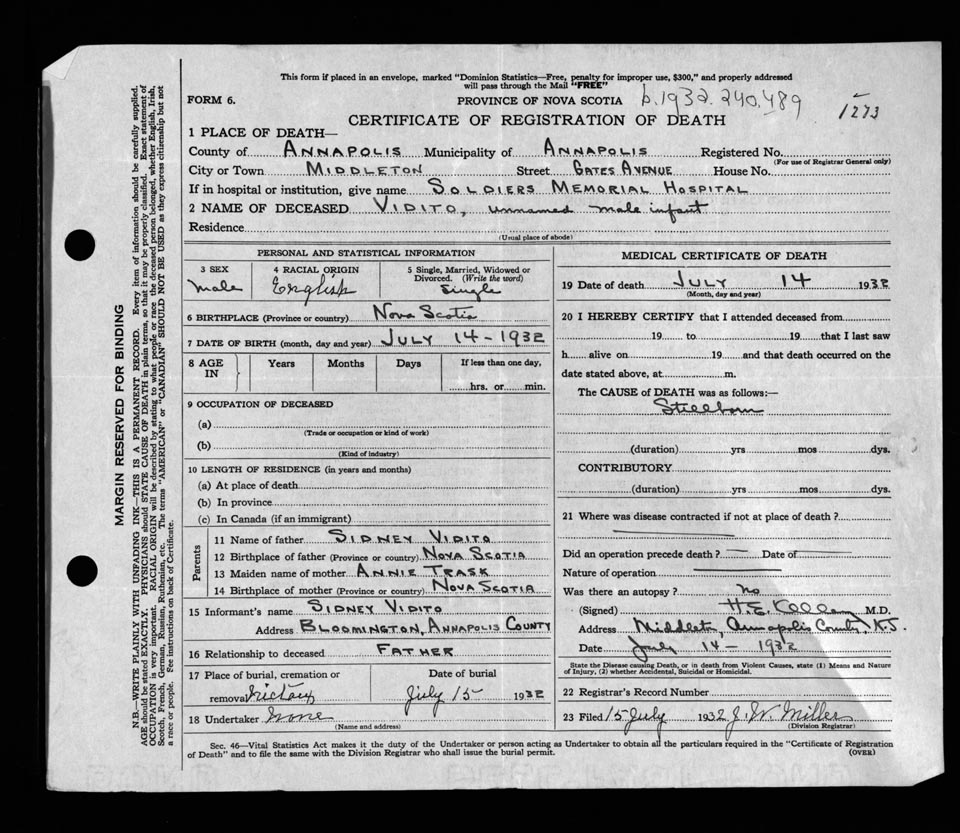 This form if placed in an envelope, marked "Dominion Statistics—Free, penalty for improper use, $300," and properly addressed
will pass through the Mail "FREE"
FORM 6.
PROVINCE OF NOVA SCOTIA
b.1932.240.489
1273
CERTIFICATE OF REGISTRATION OF DEATH
1 PLACE OF DEATH—
County of ANNAPOLIS Municipality of ANNAPOLIS Registered No.
(For use of Registrar General only)
City or Town MIDDLETON Street GATES AVENUE House No.
If in hospital or institution, give name SOLDIERS MEMORIAL HOSPITAL
2 NAME OF DECEASED VIDITO, unnamed male infant
Residence
(Usual place of abode)
PERSONAL AND STATISTICAL INFORMATION
3 SEX 4 RACIAL ORIGIN 5 Single, Married, Widowed or
Divorced. (Write the word)
male English Single
6 BIRTHPLACE (Province or country) Nova Scotia
7 DATE OF BIRTH (month, day and year) JULY 14-1932
8 AGE IN Years Months Days If less than one day,
hrs. or min.
9 OCCUPATION OF DECEASED
(a)
(Trade or occupation or kind of work)
(b)
(Kind of industry)
10 LENGTH OF RESIDENCE (in years and months)
(a) At place of death
(b) In province
(c) In Canada (if an immigrant)
Parents
11 Name of father SIDNEY VIDITO
12 Birthplace of father (Province or country) NOVA SCOTIA
13 Maiden name of mother ANNIE TRASK
14 Birthplace of mother (Province or country) NOVA SCOTIA
15 Informant's name SIDNEY VIDITO
Address BLOOMINGTON, ANNAPOLIS COUNTY
16 Relationship to deceased FATHER
17 Place of burial, cremation or Date of burial
removal July 15 1932
18 Undertaker None
(Name and address)
MEDICAL CERTIFICATE OF DEATH
19 Date of death JULY 14 1932
(Month, day and year)
20 I HEREBY CERTIFY that I attended deceased from
19 to 19 that I last saw
h alive on 19 and that death occurred on the
date stated above, at m.
The CAUSE OF DEATH was as follows:
Stillborn
(duration) yrs mos dys.
CONTRIBUTORY
(duration) yrs mos dys.
21 Where was disease contracted if not at place of death?
Did an operation precede death? — Date of
Nature of operation
Was there an autopsy? no
(Signed) M.D.
Address Middleton, Annapolis County, N.S.
Date July 14- 1932
State the Disease causing Death, or in death from Violent Causes, state (1) Means and Nature
of Injury, (2) whether Accidental, Suicidal or Homicidal.
22 Registrar's Record Number
23 Filed 15 July 1932 J. W. Miller
(Division Registrar)
Sec. 46—Vital Statistics Act makes it the duty of the Undertaker or person acting as Undertaker to obtain all the particulars required in the "Certificate of Registration
of Death" and to file the same with the Division Registrar who shall issue the burial permit. (OVER)
MARGIN RESERVED FOR BINDING
N.B.—WRITE PLAINLY WITH UNFADING INK—THIS IS A PERMANENT RECORD. Every item of information should be carefully supplied.
AGE should be stated EXACTLY. PHYSICIANS should STATE CAUSE OF DEATH in plain terms, so that it may be properly classified. Exact statement of
OCCUPATION is very important. RACIAL ORIGIN will be described by stating to what people or race the deceased person belonged, whether English, Irish,
Scotch, French, German, Russian, Ruthenian, etc. The terms "AMERICAN" or "CANADIAN" SHOULD NOT BE USED as they express citizenship but not
a race or people. See instructions on back of Certificate.